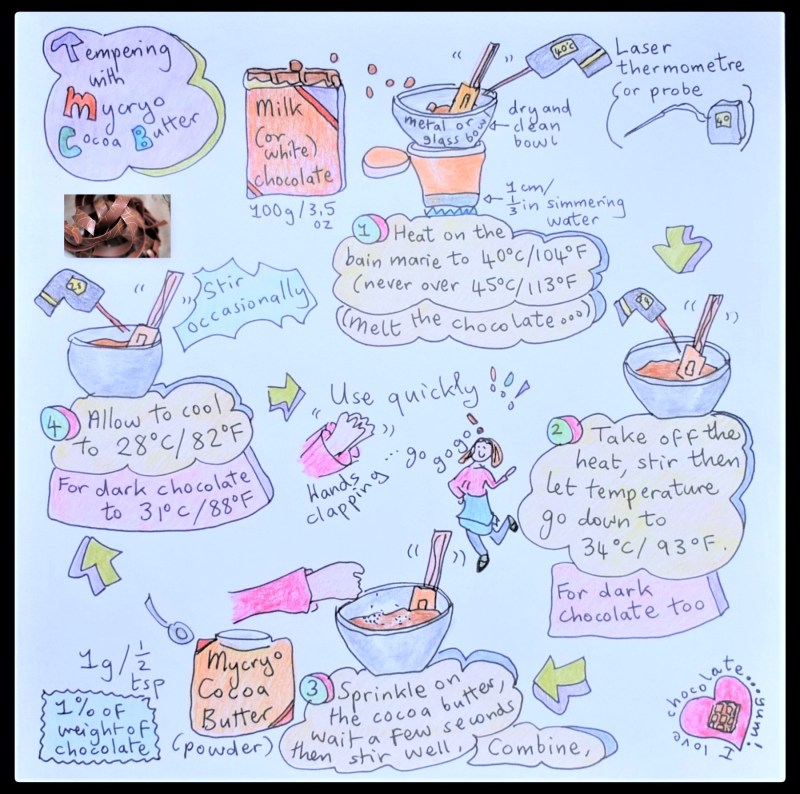 Tempering
with
Mycryo
Cocoa Butter
Milk
(or
white)
chocolate
100g/3.5
oz
metal or
glass bowl
dry and
clean
bowl
40°C
Laser
thermometre
(or probe
)
40
1 cm/
1/3 in simmering
water
1 Heat on the
bain marie to 40°C/104°F
(never over 45°C/113°F
(Melt the chocolate ooo)
34
2 Take off the
heat, stir then
let temperature
go down to
34°C/93°F.
For dark
chocolate too
3 Sprinkle on
the cocoa butter,
wait a few seconds
then stir well.
Combine,
Mycryo
Cocoa
Butter
(powder)
1g/1/2
tsp
1% of
weight of
chocolate
28
Stir
occasionally
4 Allow to cool
to 28°C/82°F
For dark chocolate
to 31°C/88°F
Use quickly!
Hands
clapping
... go go go
I love chocolate... yum!